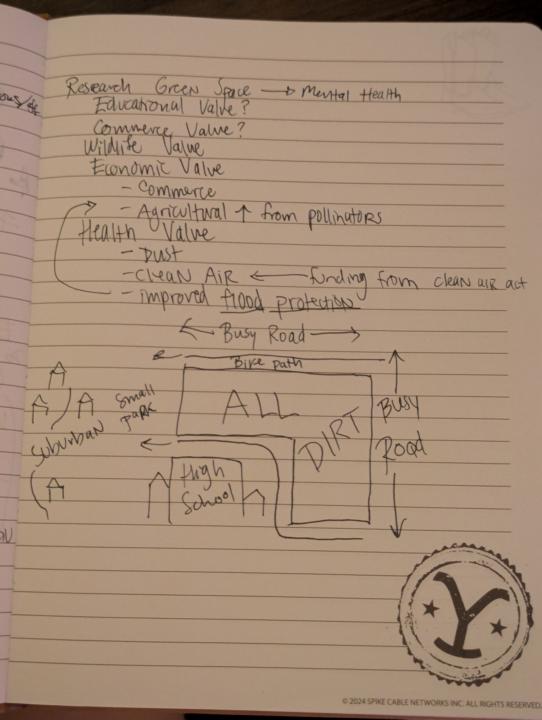 Research Green Space → Mental Health
Educational Value?
Commerce Value?
Wildlife Value
Economic Value
- Commerce
- Agricultural ↑ from pollinators
Health Value
- Dust
- Clean Air ← funding from clean air act
- improved flood protection
← Busy Road →
Bike path
Small Park
ALL
DIRT
Busy Road
Suburban
High School
Y
© 2024 SPIKE CABLE NETWORKS INC. ALL RIGHTS RESERVED.